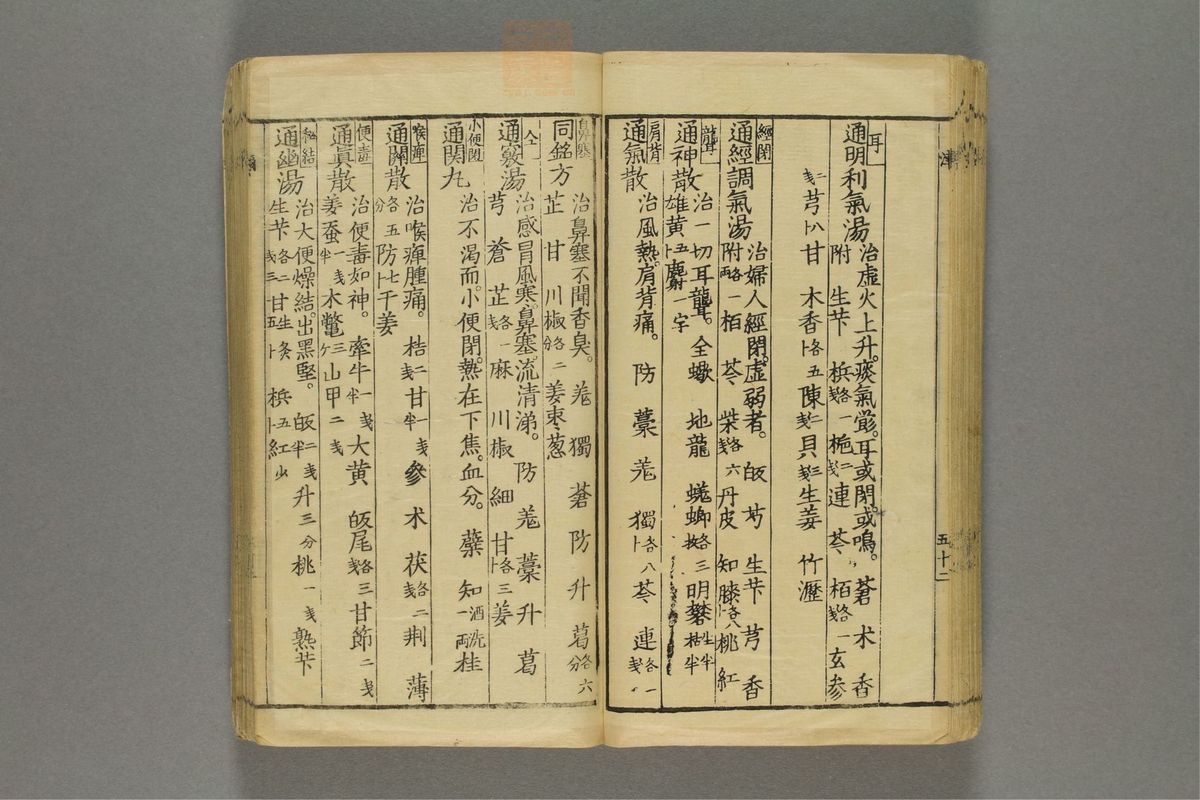 耳
通明利氣湯
治虛火上升。痰氣欝。耳或閉。或鳴。 蒼 术 香
附 生芐 梹各一戔 梔二戔 連 芩 栢各一戔 玄參
二戔 芎卜八 甘 木香各五卜 陳二戔 貝三戔 生姜 竹瀝
經閉
通經調氣湯
治婦人經閉。虛弱者。 皈 芍 生芐 芎 香
附各一兩 栢 芩 柴各六戔 丹皮 知 膝各八卜 桃 紅
聾耳
通神散
治一切耳聾。全蠍 地龍 蜣蜋各三枚 明礬生半枯半
雄黃五卜 麝一字
肩背
通氣散
治風熱。肩背痛。 防 藁 羗 獨各八卜 芩 連各一戔
五十二
鼻塞
同銘方
治鼻塞不聞香臭。 羗 獨 蒼 防 升 葛各六分
芷 甘 川椒各二分 姜枣葱
仝
通竅湯
治感冒風寒。鼻塞。流清涕。 防 羗 藁 升 葛
芎 蒼 芷各一戔 麻 川椒 細 甘各三卜 姜
小便閉
通関丸
治不渴而。小便閉。熱在下焦。血分。 蘗 知酒洗一兩 桂
喉痺
通關散
治喉痺腫痛。 桔二戔 甘一戔半 參 术 茯各二戔 荆 薄
各五分 防七卜 干姜
便毒
通眞散
治便毒如神。 牽牛一戔半 大黄 皈尾各三戔 甘節二戔
姜蚕一戔半 木鼈三ケ 山甲二戔
秘結
通幽湯
治大便燥結。出黑堅。 皈二戔半 升三分 桃一戔 熟芐
生芐各二戔三 甘生炙五卜 梹五卜 紅少